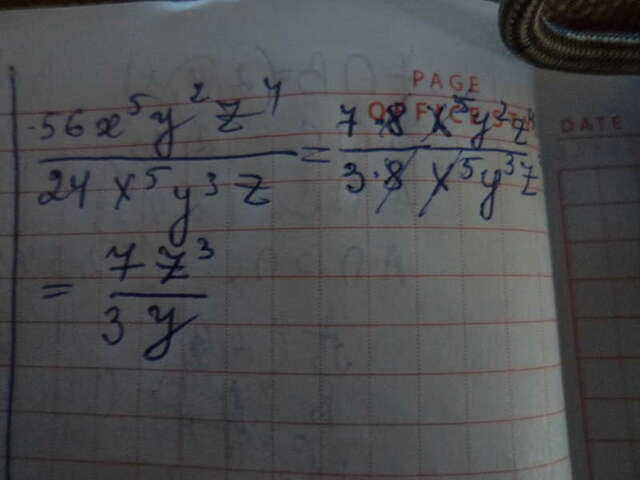 PAGE
DATE
56x⁵y²z⁴/24x⁵y³z = 7·8x⁵y²z⁴/3·8x⁵y³z
= 7z³/3y